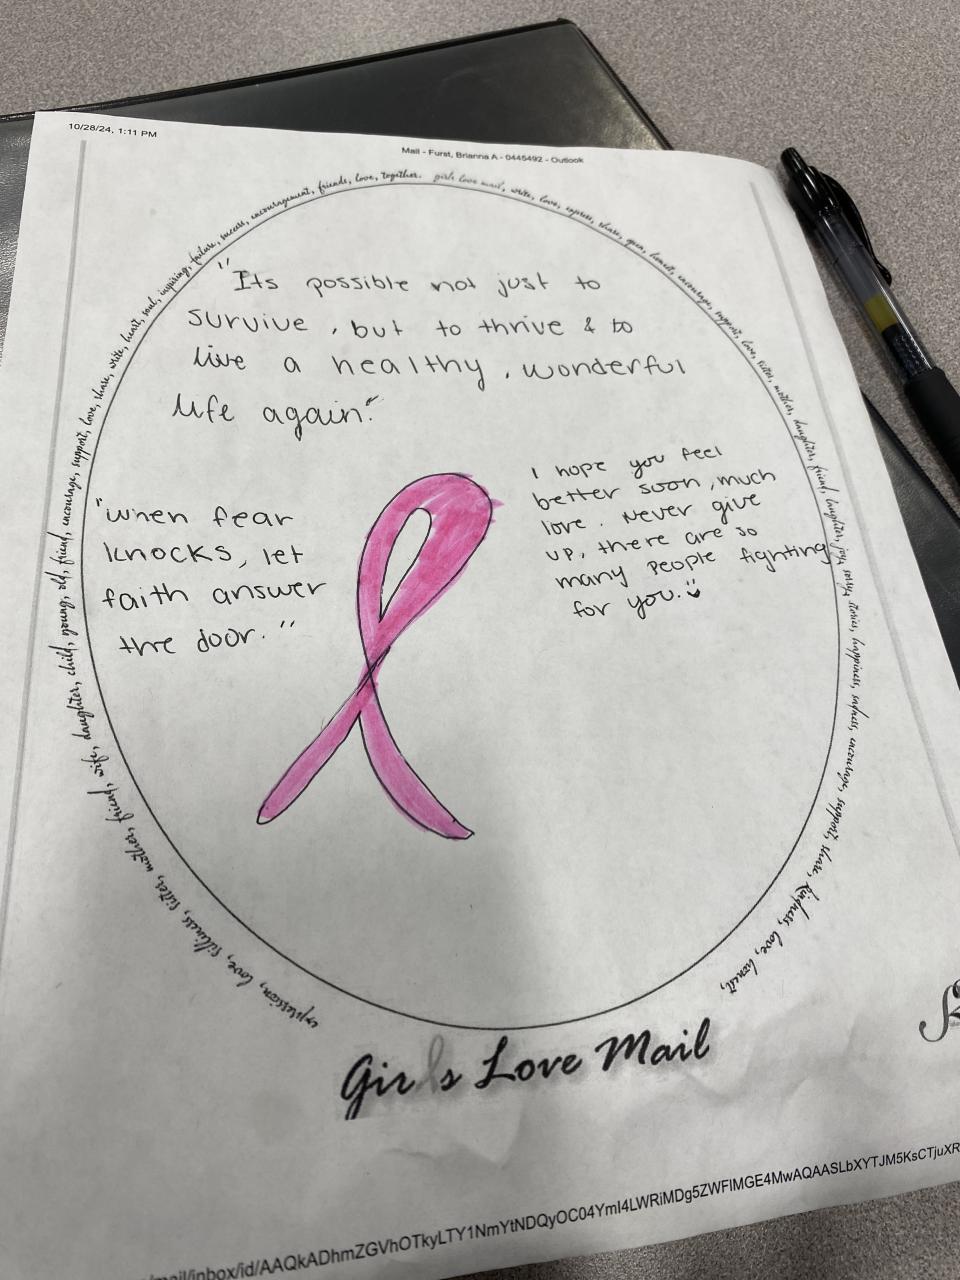 10/28/24, 1:11 PM
Mail - Furst, Brianna A - 0445492 - Outlook
girls love mail, write, love, express, share, open, honest, encourage, support, love, sister, mother, daughter, friend, laughter, joy, stories, happiness, sadness, encourage, support, share, kindness, love, honest,
expression, love, silliness, sister, mother, friend, wife, daughter, child, young, old, friend, encourage, support, love, share, write, heart, soul, inspiring, failure, success, encouragement, friends, love, together.
"Its possible not just to
survive, but to thrive & to
live a healthy, wonderful
life again."
"when fear
knocks, let
faith answer
the door."
I hope you feel
better soon, much
love. Never give
up, there are so
many people fighting
for you.
Girls Love Mail
/mail/inbox/id/AAQkADhmZGVhOTkyLTY1NmYtNDQyOC04YmI4LWRiMDg5ZWFlMGE4MwAQAASLbXYTJM5KsCTjuXR